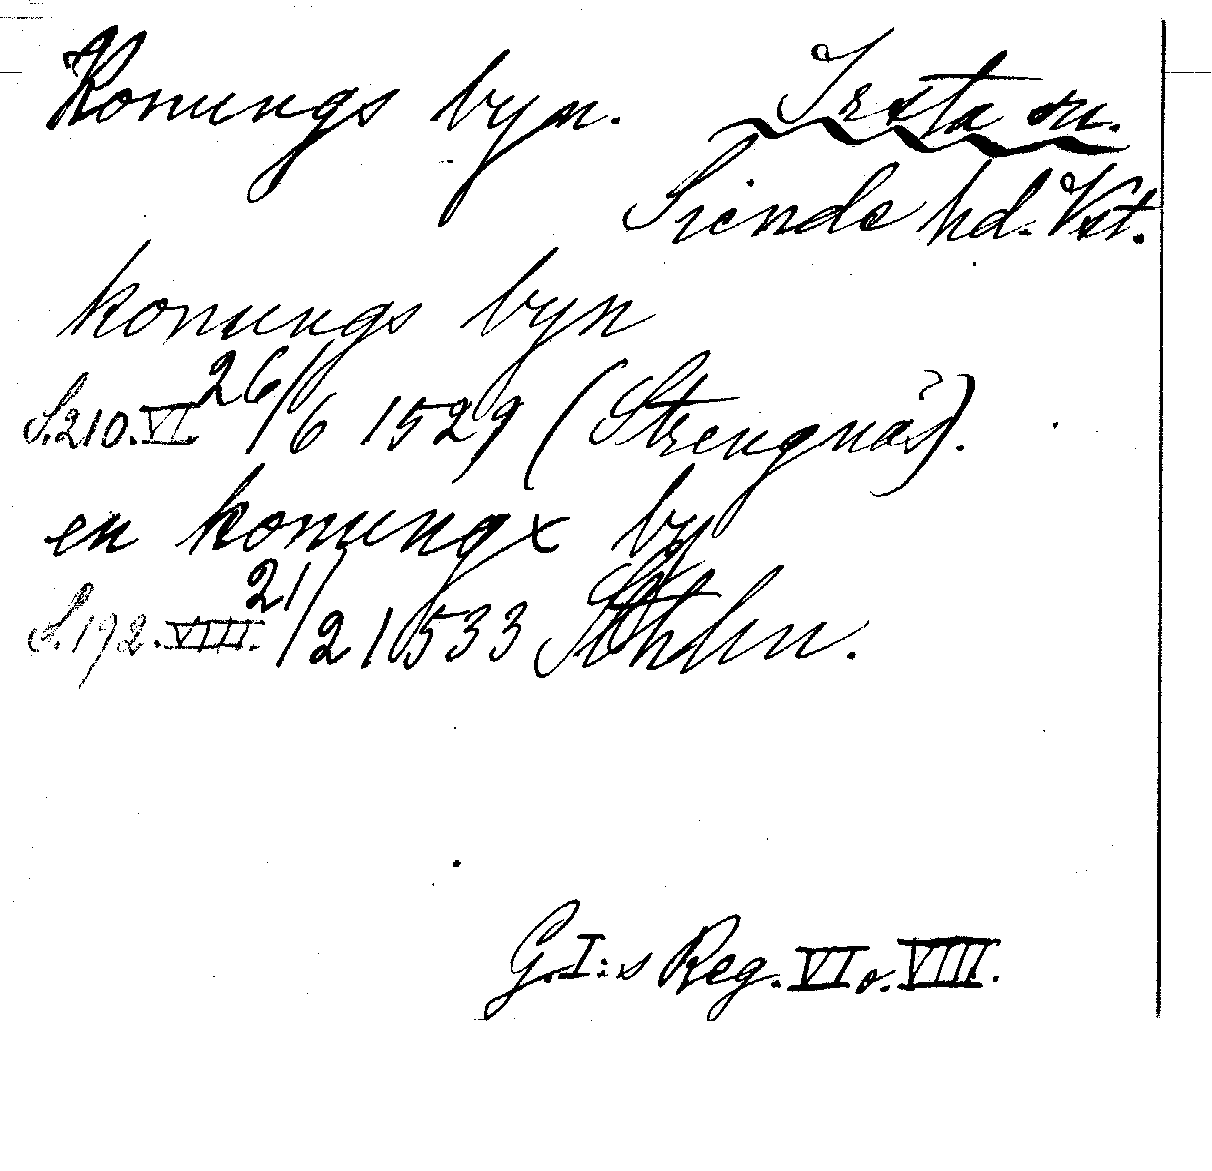 Konungs byn. Irsta sn.
Siende hd. Vst.
konungs byn
S.210.VI. 26/6 1529 (Strengnäs).
en konungx by
S.192.VIII. 21/2 1533 Sthlm.
G.I:s Reg. VI o. VIII.